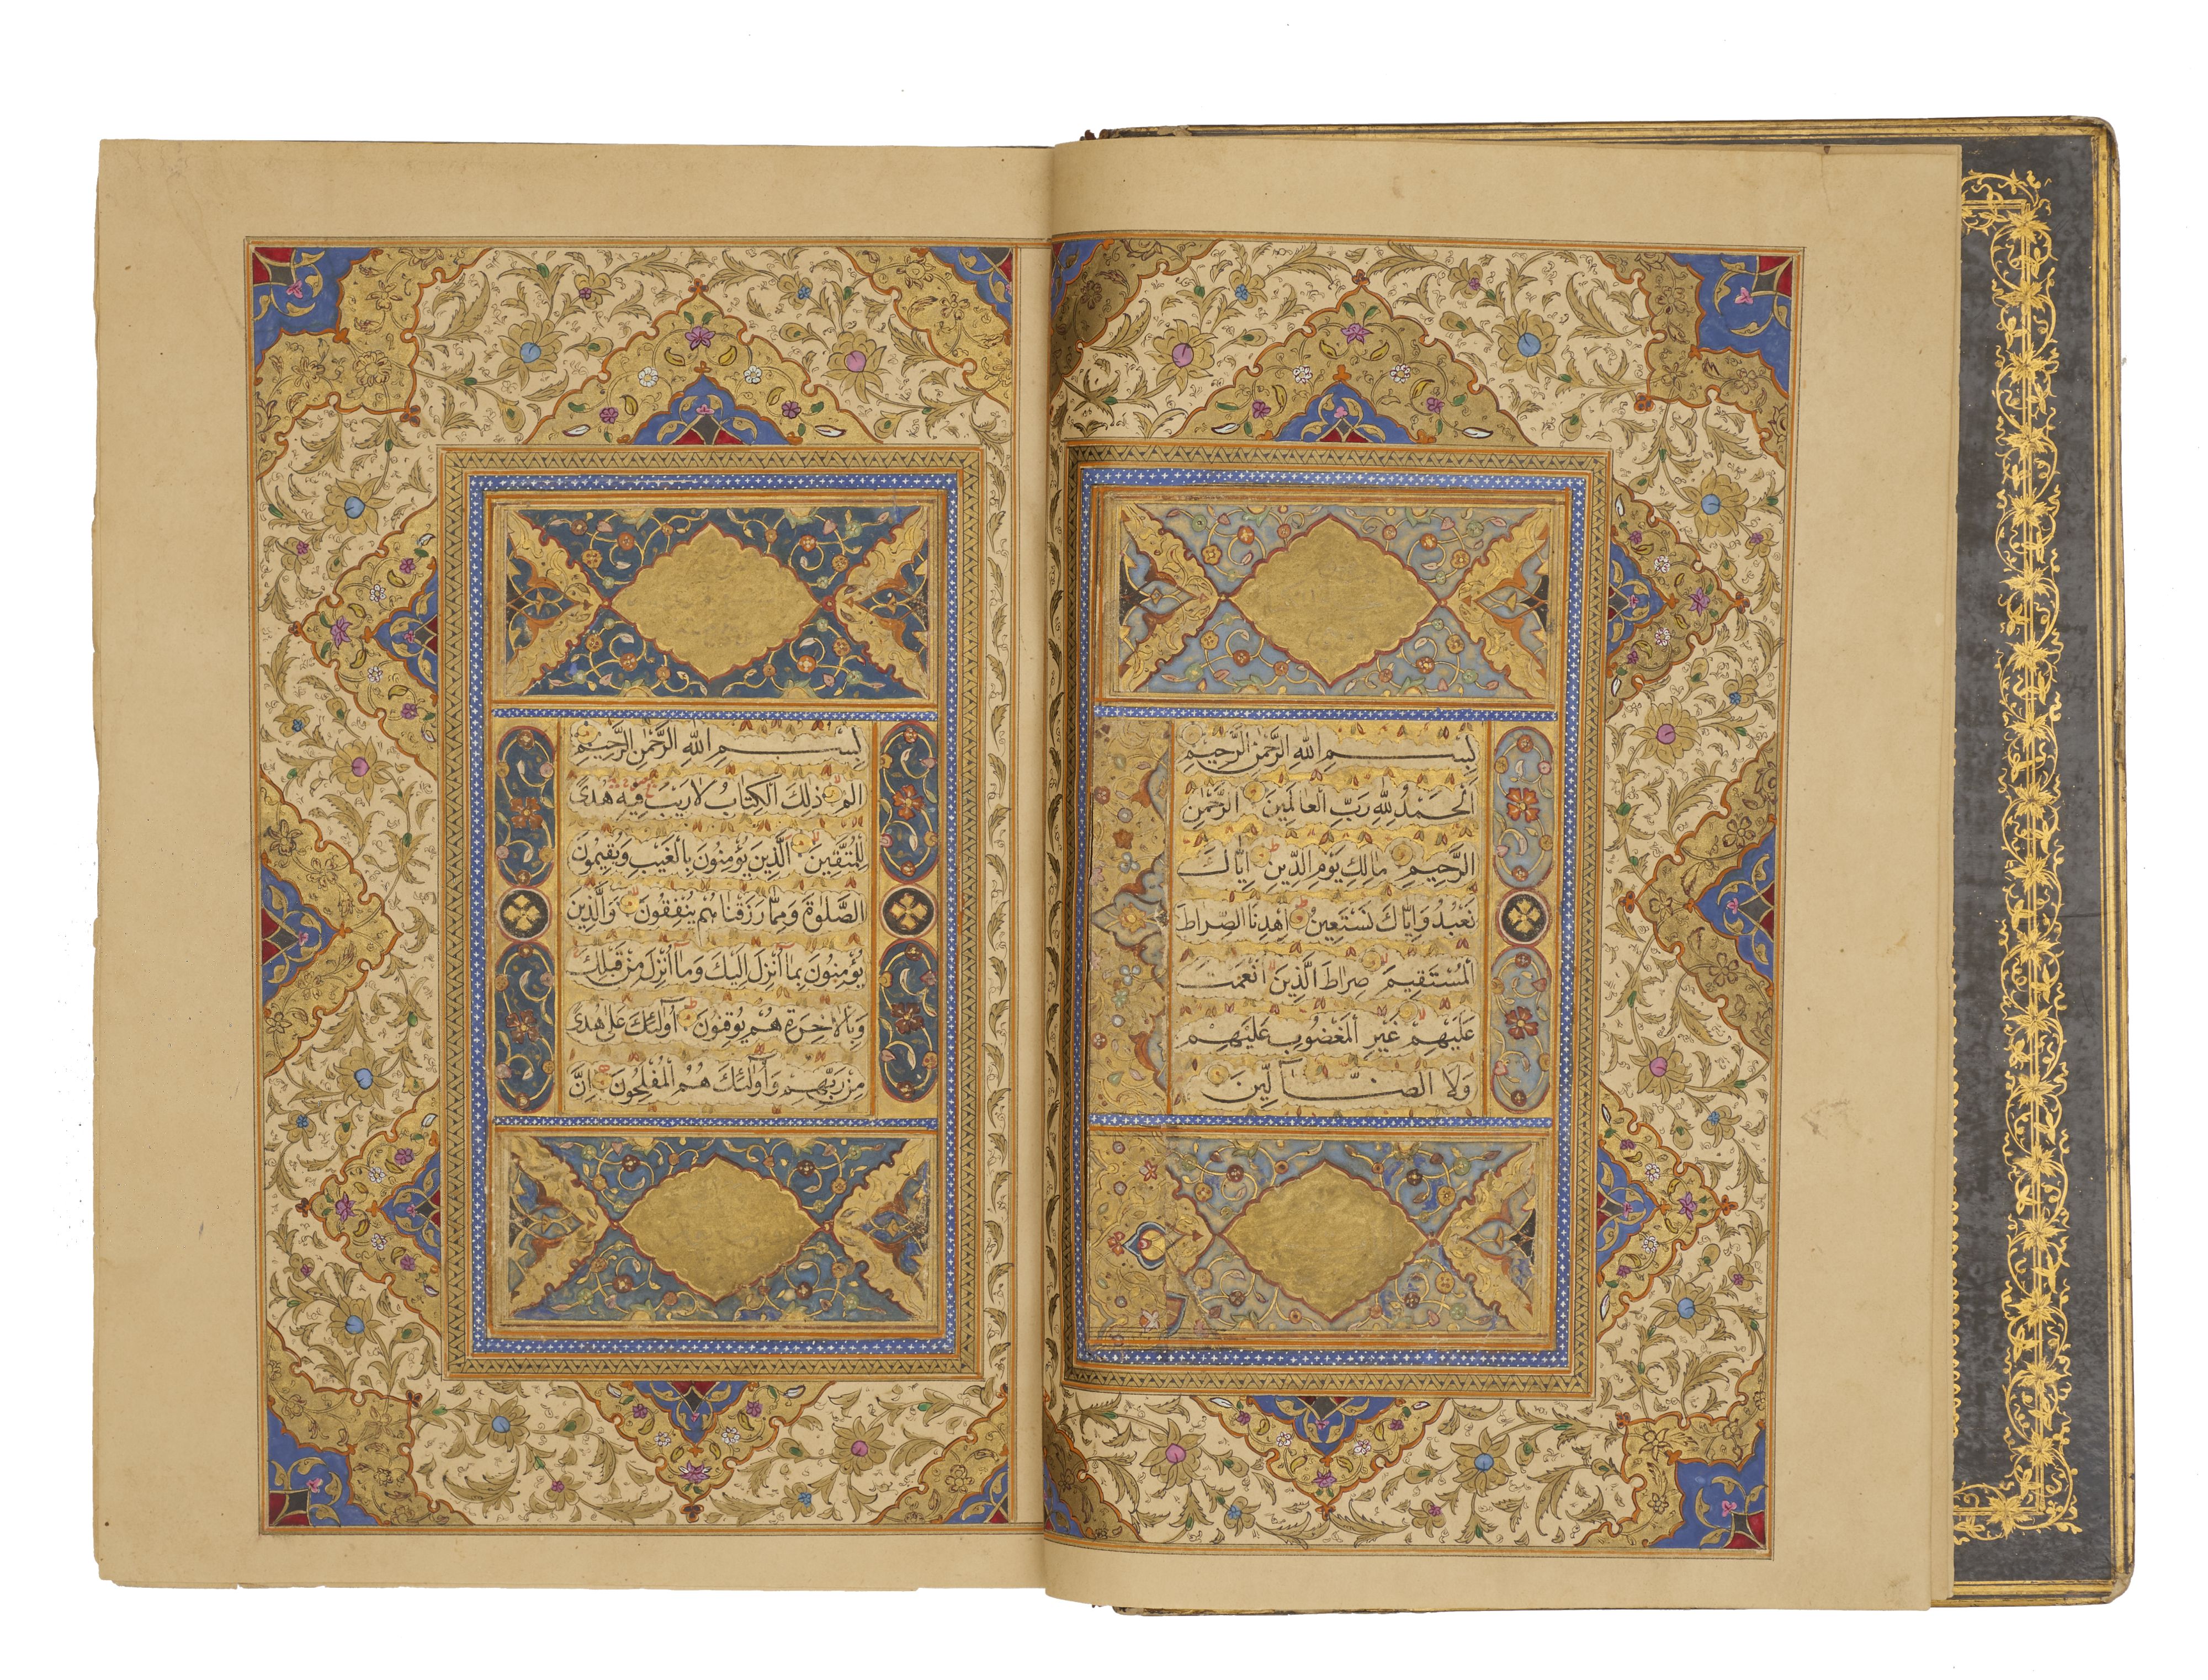 بِسْمِ اللهِ الرَّحْمٰنِ الرَّحِيمِ
اَلْحَمْدُ لِلّٰهِ رَبِّ الْعَالَمِينَ الرَّحْمٰنِ
الرَّحِيمِ مَالِكِ يَوْمِ الدِّينِ اِيَّاكَ
نَعْبُدُ وَاِيَّاكَ نَسْتَعِينُ اِهْدِنَا الصِّرَاطَ
الْمُسْتَقِيمَ صِرَاطَ الَّذِينَ اَنْعَمْتَ
عَلَيْهِمْ غَيْرِ الْمَغْضُوبِ عَلَيْهِمْ
وَلَا الضَّآلِّينَ
بِسْمِ اللهِ الرَّحْمٰنِ الرَّحِيمِ
الم ذٰلِكَ الْكِتَابُ لَا رَيْبَ فِيهِ هُدًى
لِلْمُتَّقِينَ الَّذِينَ يُؤْمِنُونَ بِالْغَيْبِ وَيُقِيمُونَ
الصَّلٰوةَ وَمِمَّا رَزَقْنَاهُمْ يُنْفِقُونَ وَالَّذِينَ
يُؤْمِنُونَ بِمَآ اُنْزِلَ اِلَيْكَ وَمَآ اُنْزِلَ مِنْ قَبْلِكَ
وَبِالْاٰخِرَةِ هُمْ يُوقِنُونَ اُولٰٓئِكَ عَلٰى هُدًى
مِنْ رَبِّهِمْ وَاُولٰٓئِكَ هُمُ الْمُفْلِحُونَ اِنَّ